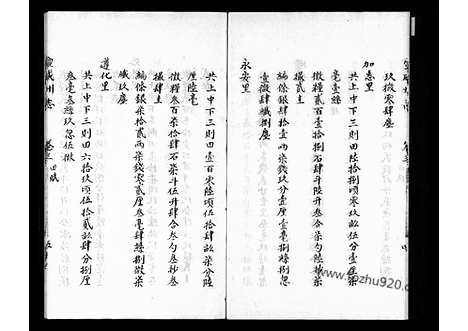 玖微零肆塵
加恵里
共上中下三則田壹百捌拾頃零玖畝伍分壹
毫壹絲
徵糧貳百拾捌石肆斗陸升叁合柒勺陸抄柒
撮貳圭
編條銀肆拾壹兩柒錢玖分壹厘壹毫捌絲捌忽
壹微肆纖捌塵
永安里
共上中下三則田壹百零陸頃伍拾肆畝柒分陸
厘陸毫
徵糧叁百柒拾肆石柒斗伍升肆合叁勺叁抄叁
撮肆圭
編條銀柒拾貳兩柒錢零貳厘叁毫肆絲捌微柒
纖玖塵
遵化里
共上中下三則田六拾玖頃伍拾貳畝肆分捌厘
叁毫叁絲玖忽伍微
州志
卷三
田賦